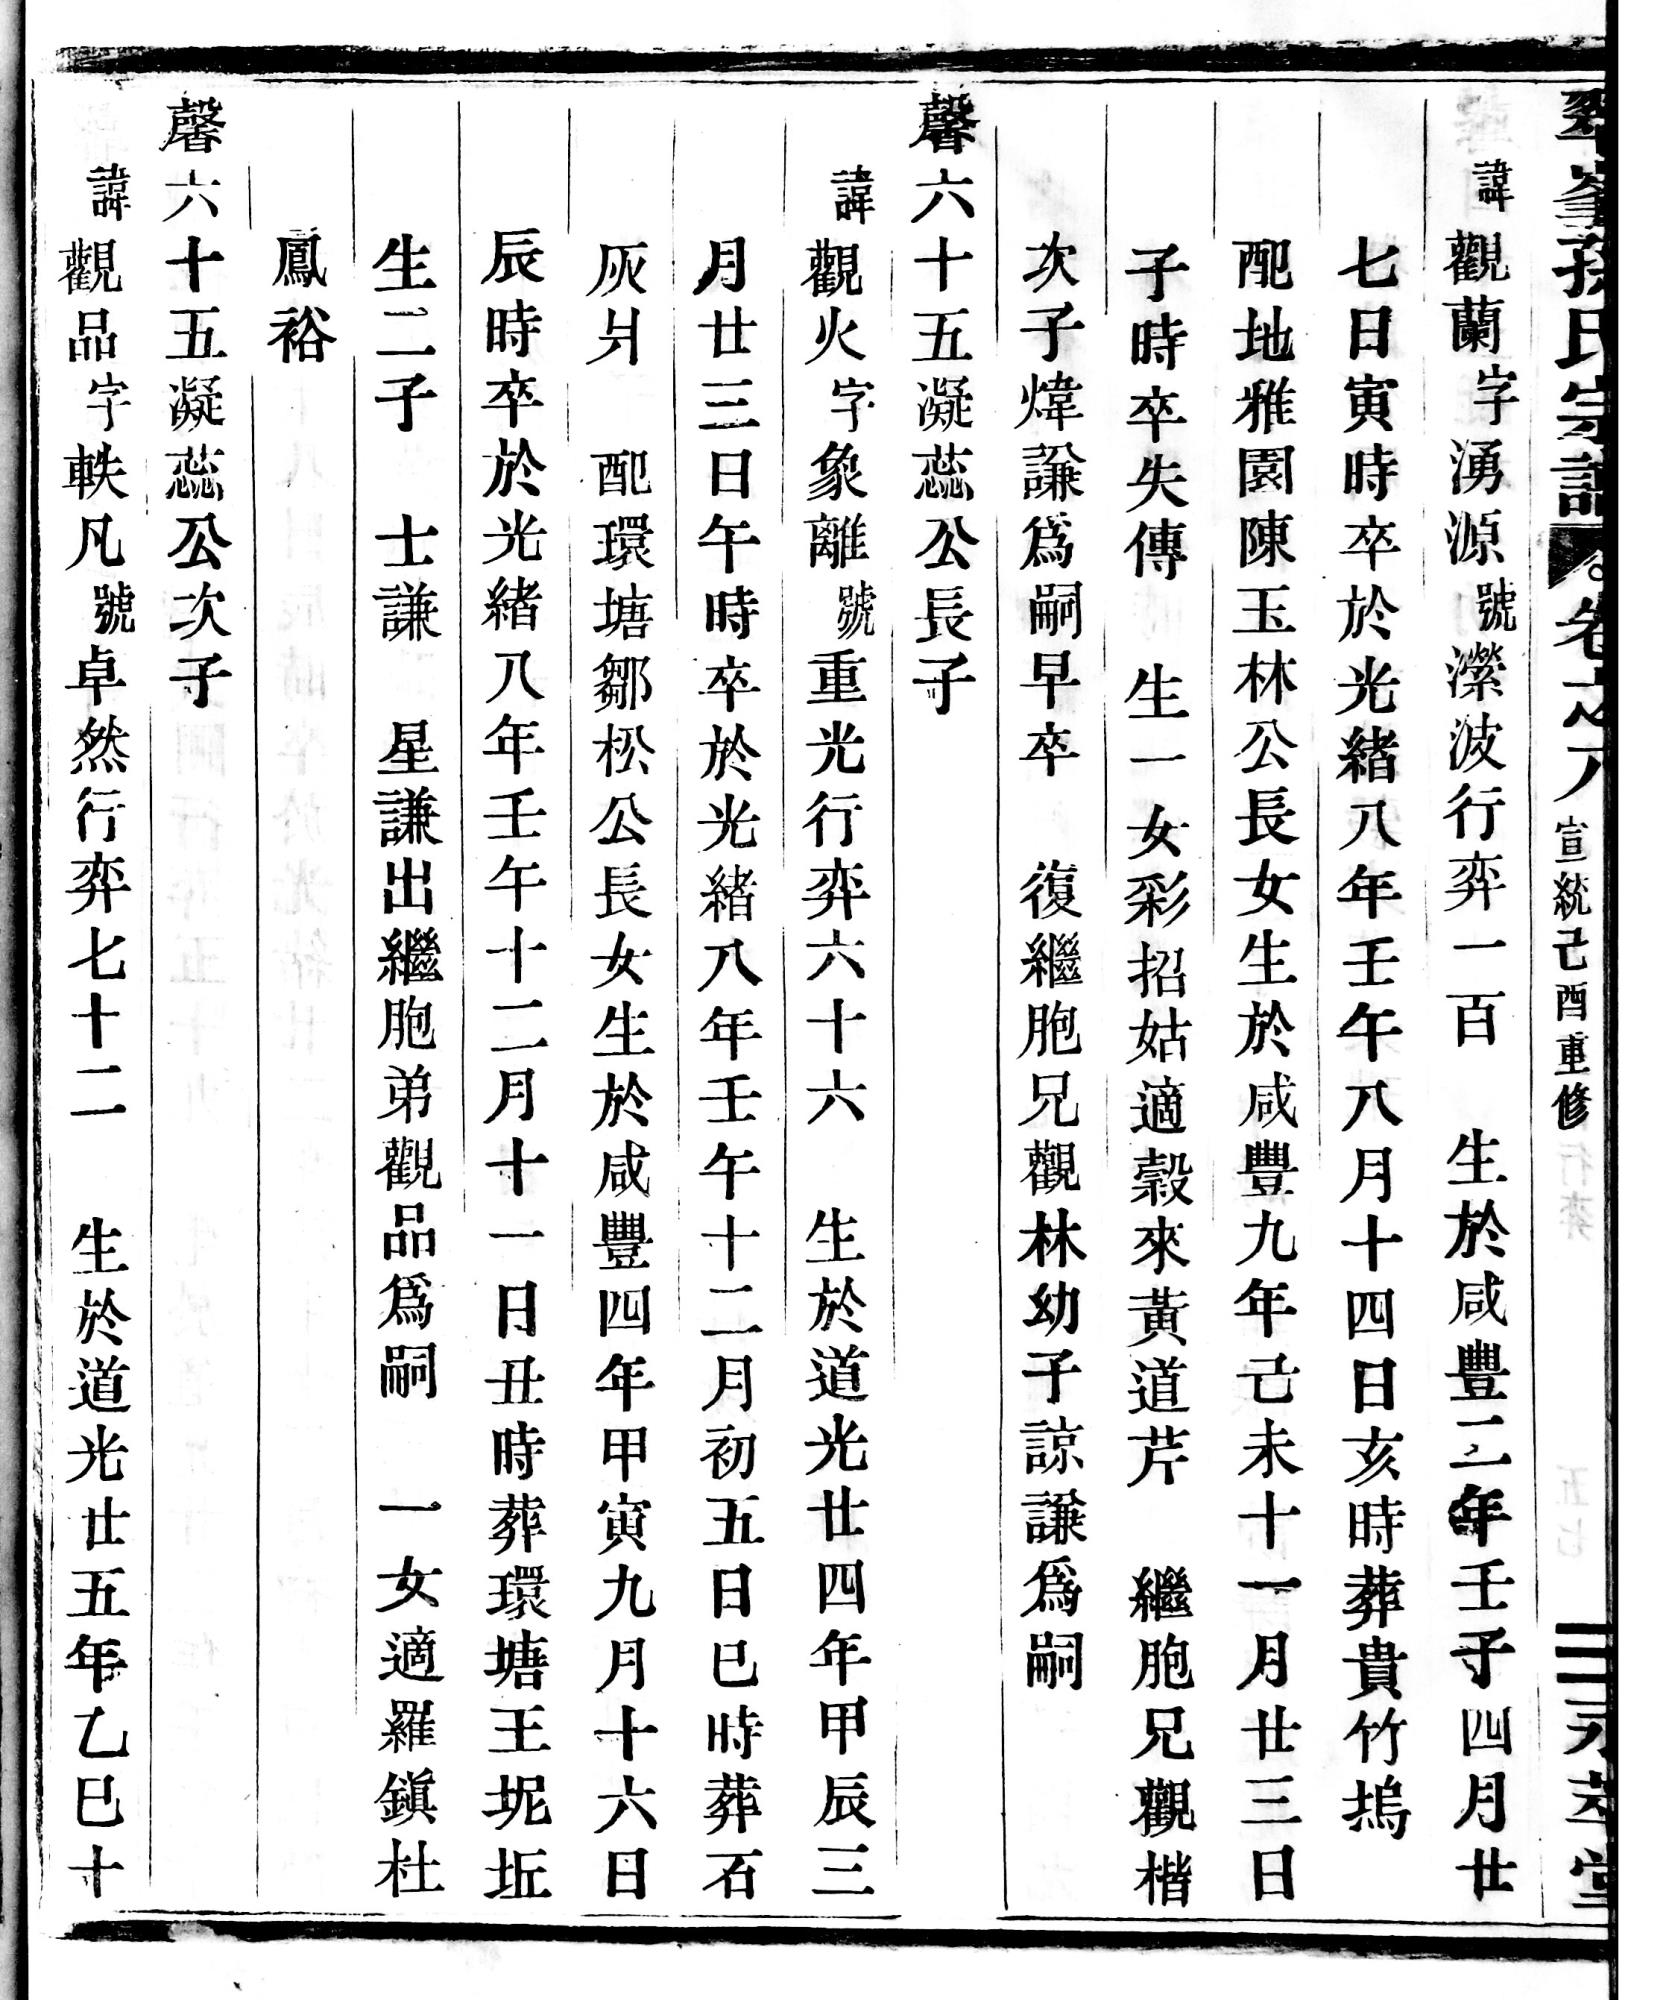 孫氏宗譜 卷之八 宣統己酉重修
諱觀蘭字湧源號濚波行弈一百 生於咸豐二年壬子四月廿
七日寅時卒於光緒八年壬午八月十四日亥時葬貴竹塢
配地雅園陳玉林公長女生於咸豐九年己未十一月廿三日
子時卒失傳 生一女彩招姑適穀來黃道芹 繼胞兄觀楷
次子煒謙爲嗣早卒 復繼胞兄觀林幼子諒謙爲嗣
馨六十五凝蕊公長子
諱觀火字象離號重光行弈六十六 生於道光廿四年甲辰三
月廿三日午時卒於光緒八年壬午十二月初五日巳時葬石
灰爿 配環塘鄒松公長女生於咸豐四年甲寅九月十六日
辰時卒於光緒八年壬午十二月十一日丑時葬環塘王坭坵
生二子 士謙 星謙出繼胞弟觀品爲嗣 一女適羅鎭杜
鳳裕
馨六十五凝蕊公次子
諱觀品字軼凡號卓然行弈七十二 生於道光廿五年乙巳十